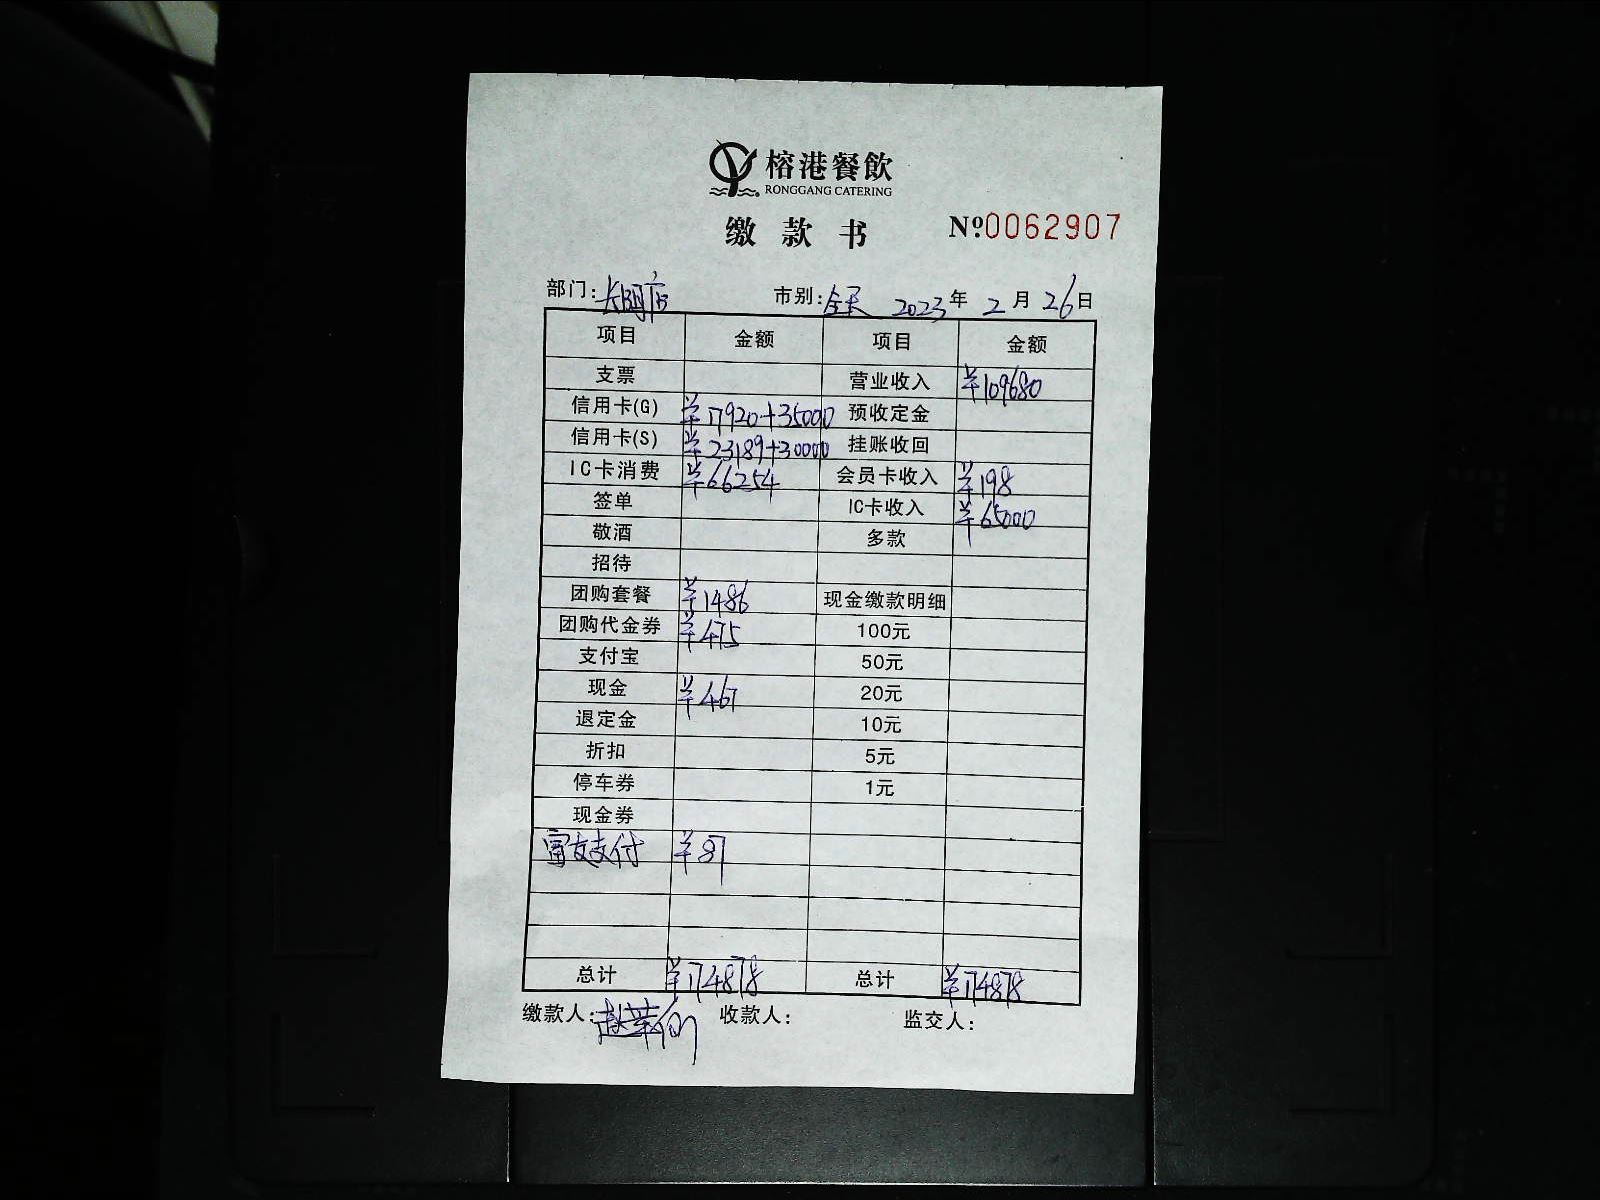 榕港餐飲
RONGGANG CATERING
缴款书 №0062907
部门: 市别:全天 2023年2月26日
项目 金额 项目 金额
支票 营业收入 ¥109680
信用卡(G) ¥17920+35000 预收定金
信用卡(S) ¥23189+30000 挂账收回
IC卡消费 ¥66254 会员卡收入 ¥198
签单 IC卡收入 ¥65000
敬酒 多款
招待
团购套餐 ¥1486 现金缴款明细
团购代金券 ¥475 100元
支付宝 50元
现金 ¥467 20元
退定金 10元
折扣 5元
停车券 1元
现金券
富友支付 ¥87
总计 ¥174878 总计 ¥174878
缴款人: 收款人: 监交人: